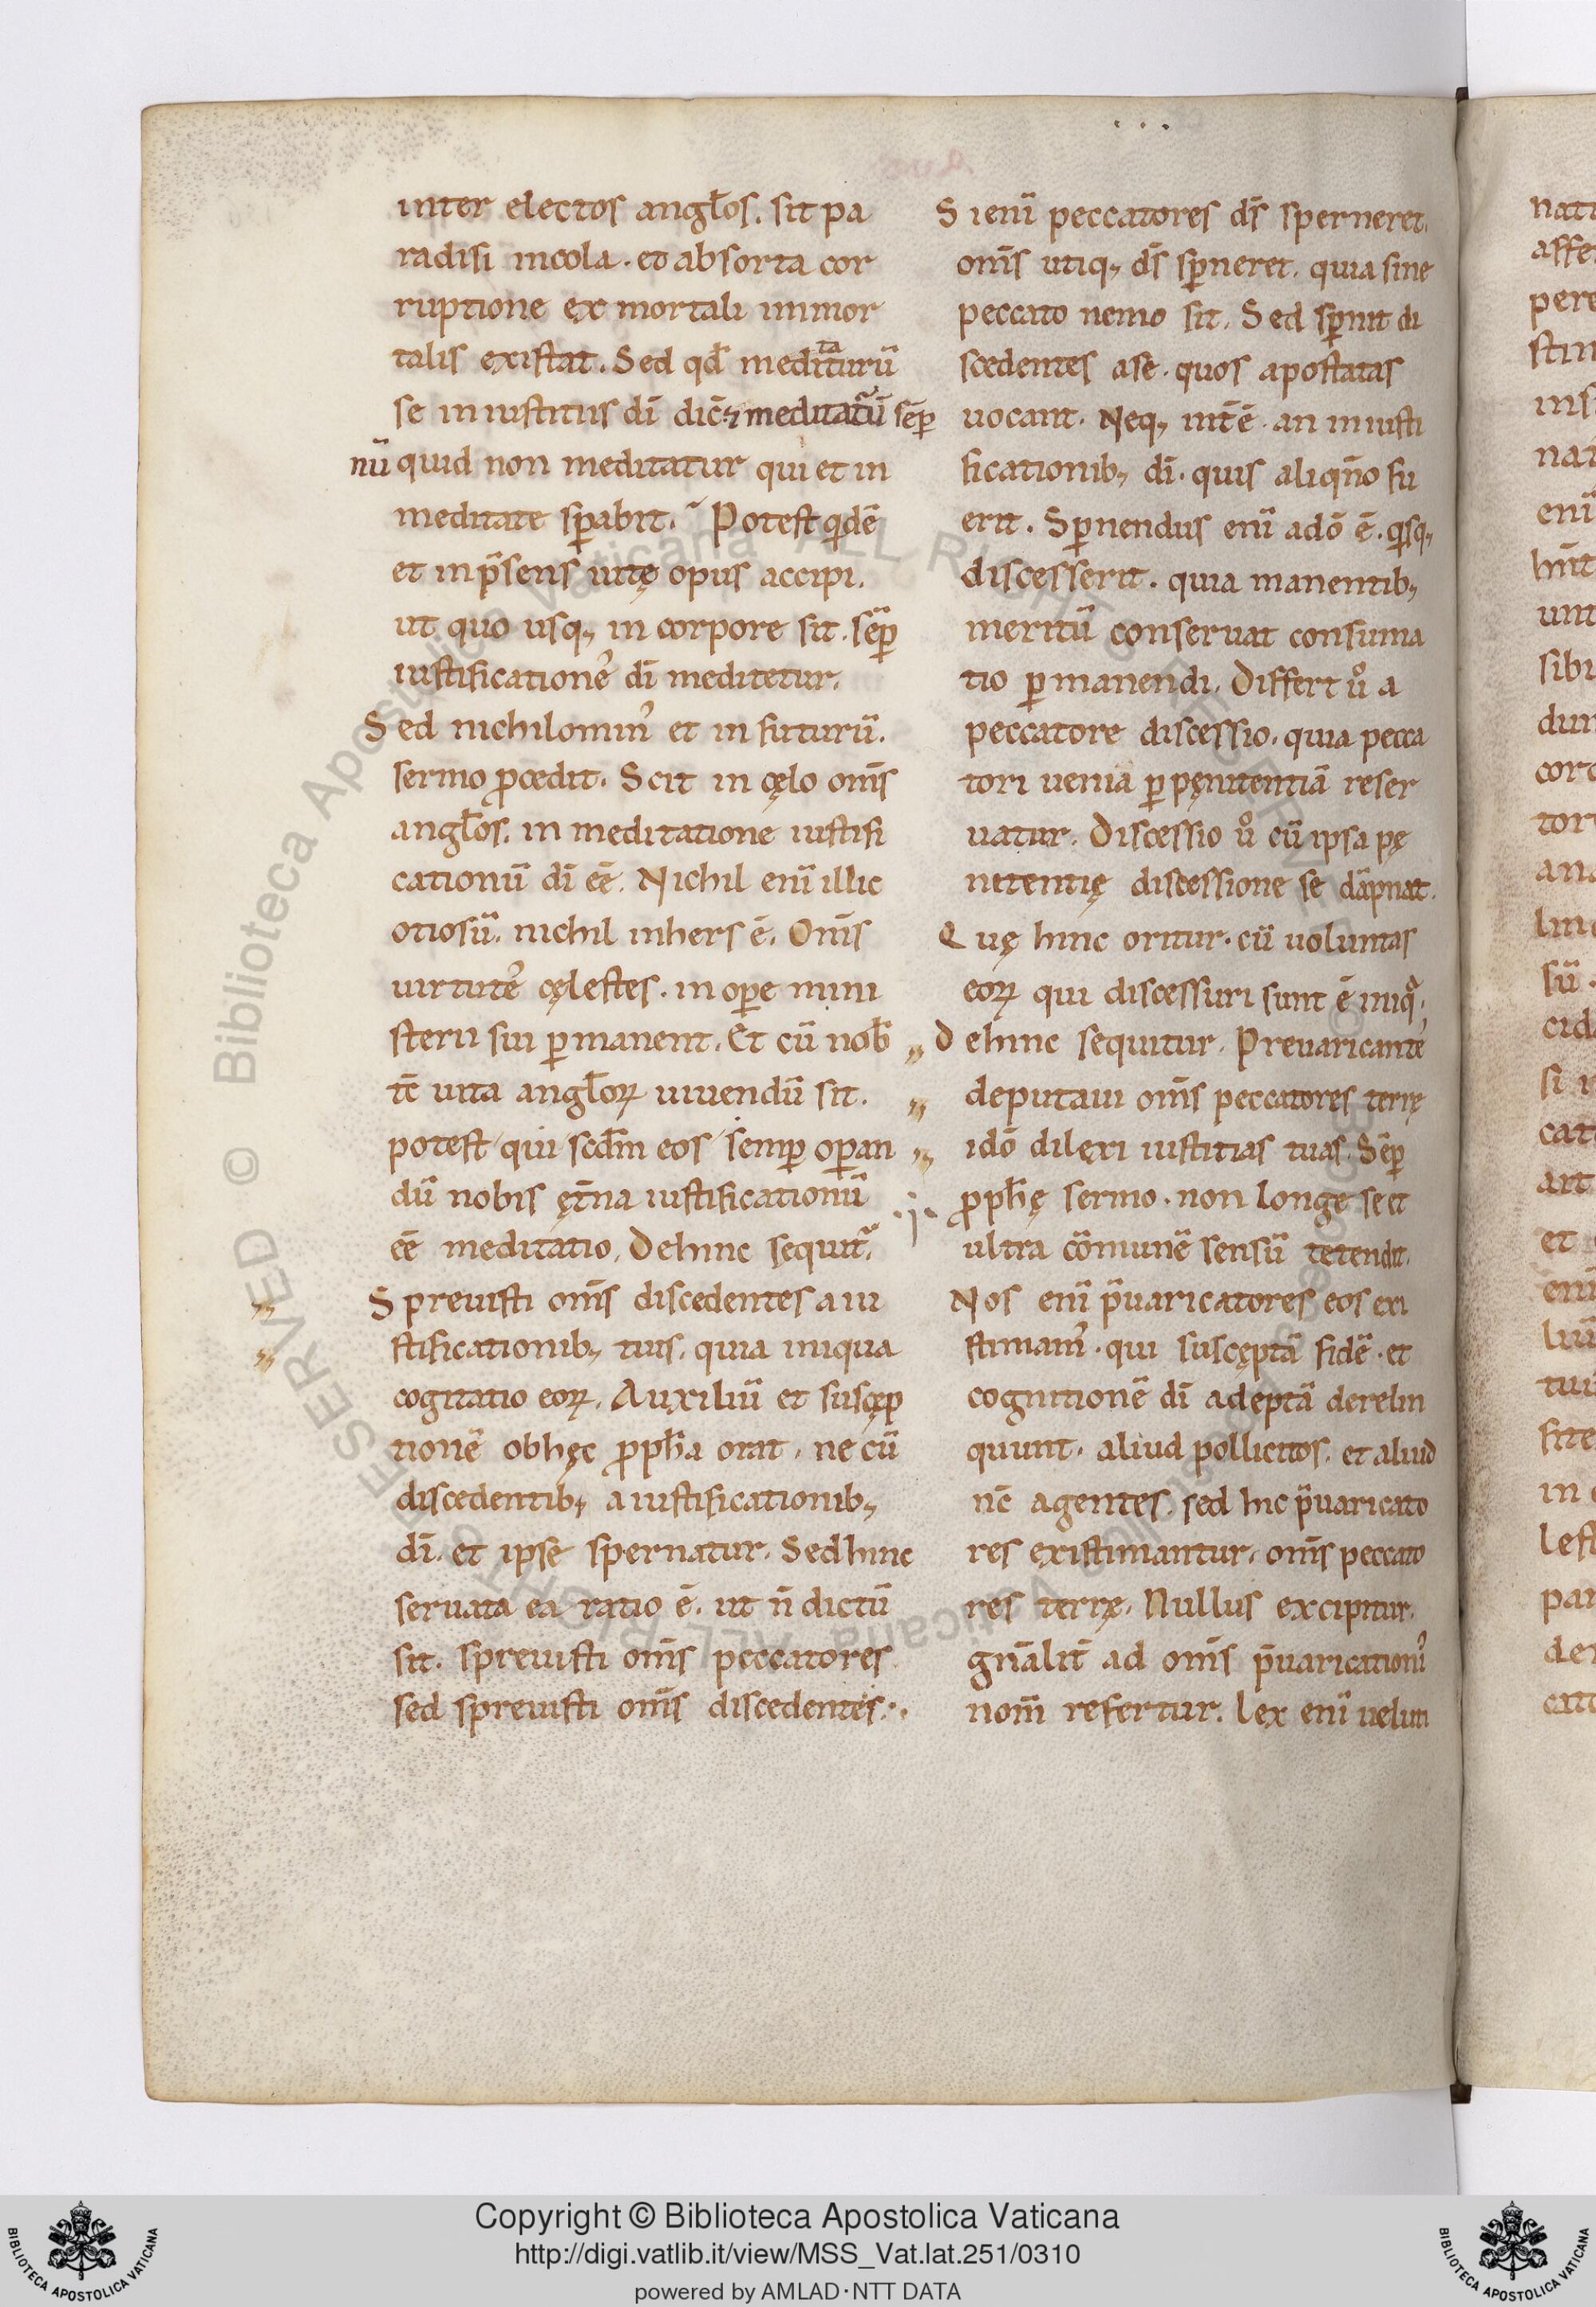 inter electos angl̄os. sit pa
radisi incola. et absorta cor
ruptione ex mortali immor
talis existat. Sed qd̄ meditaturū
se in iustitiis dī dic̄ ⁊ meditatū sēp
nū quid non meditatur qui et in
meditate sp̄abit. Potest qidē
et in p̄sens uitę opus accipi.
ut quo usq; in corpore sit. sēp
iustificationes dī meditetur.
Sed nichilomin᾽ et in futurū.
sermo p̄cedit. Scit in cęlo om̄s
angl̄os. in meditatione iustifi
cationū dī eē. Nichil enī illic
otiosū. nichil inhers ē. Om̄s
uirtutes cęlestes. in op̄e mini
sterii sui p̄manent. Et cū nob̄
tc̄ uita angl̄oꝝ uiuendū sit.
potest qui scd̄m eos semp op̄an
dū nobis ęt̄na iustificationū
eē meditatio. Dehinc sequit᷑.
Spreuisti om̄s discedentes a iu
stificationib; tuis. quia iniqua
cogitatio eoꝝ. Auxiliū et suscęp
tionē ob hęc p̄ph̄a orat. ne cū
discedentib; a iustificationib;
dī. et ipse spernatur. Sed hinc
seruata ea ratio ē. ut n̄ dictū
sit. spreuisti om̄s peccatores
sed spreuisti om̄s discedentes.
Si enī peccatores ds̄ sperneret.
om̄s utiq; ds̄ sp̄neret. quia sine
peccato nemo sit. Sed sp̄nit di
scedentes a se. quos apostatas
uocant. Neq; int̄ē. an in iusti
ficationib; dī. quis aliqn̄o fu
erit. Sp̄nendus enī a dō ē. qisq;
discesserit. quia manentib;
meritū conseruat consuma
tio p̄manendi. Differt uº a
peccatore discessio. quia pecca
tori uenia p̄ pęnitentiā reser
uatur. Discessio uº cū ipsa pę
nitentię discessione se dāpnat.
Quę hinc oritur. cū uoluntas
eoꝝ qui discessuri sunt ē iniqa.
Dehinc sequitur. Preuaricantes
deputaui om̄s peccatores terrę
idō dilexi iustitias tuas. Sēp
p̄ph̄ę sermo. non longe se et
ultra cōmunē sensū tetendit.
Nos enī p̄uaricatores eos exi
stimam᾽. qui suscęptā fidē. et
cognitionē dī adeptā derelin
quunt. aliud pollicitos. et aliud
nc̄ agentes. sed hic p̄uaricato
res existimantur. om̄s peccato
res terrę. Nullus excipitur.
gn̄alit̄ ad om̄s p̄uaricationis
nom̄ refertur. Lex enī uelut